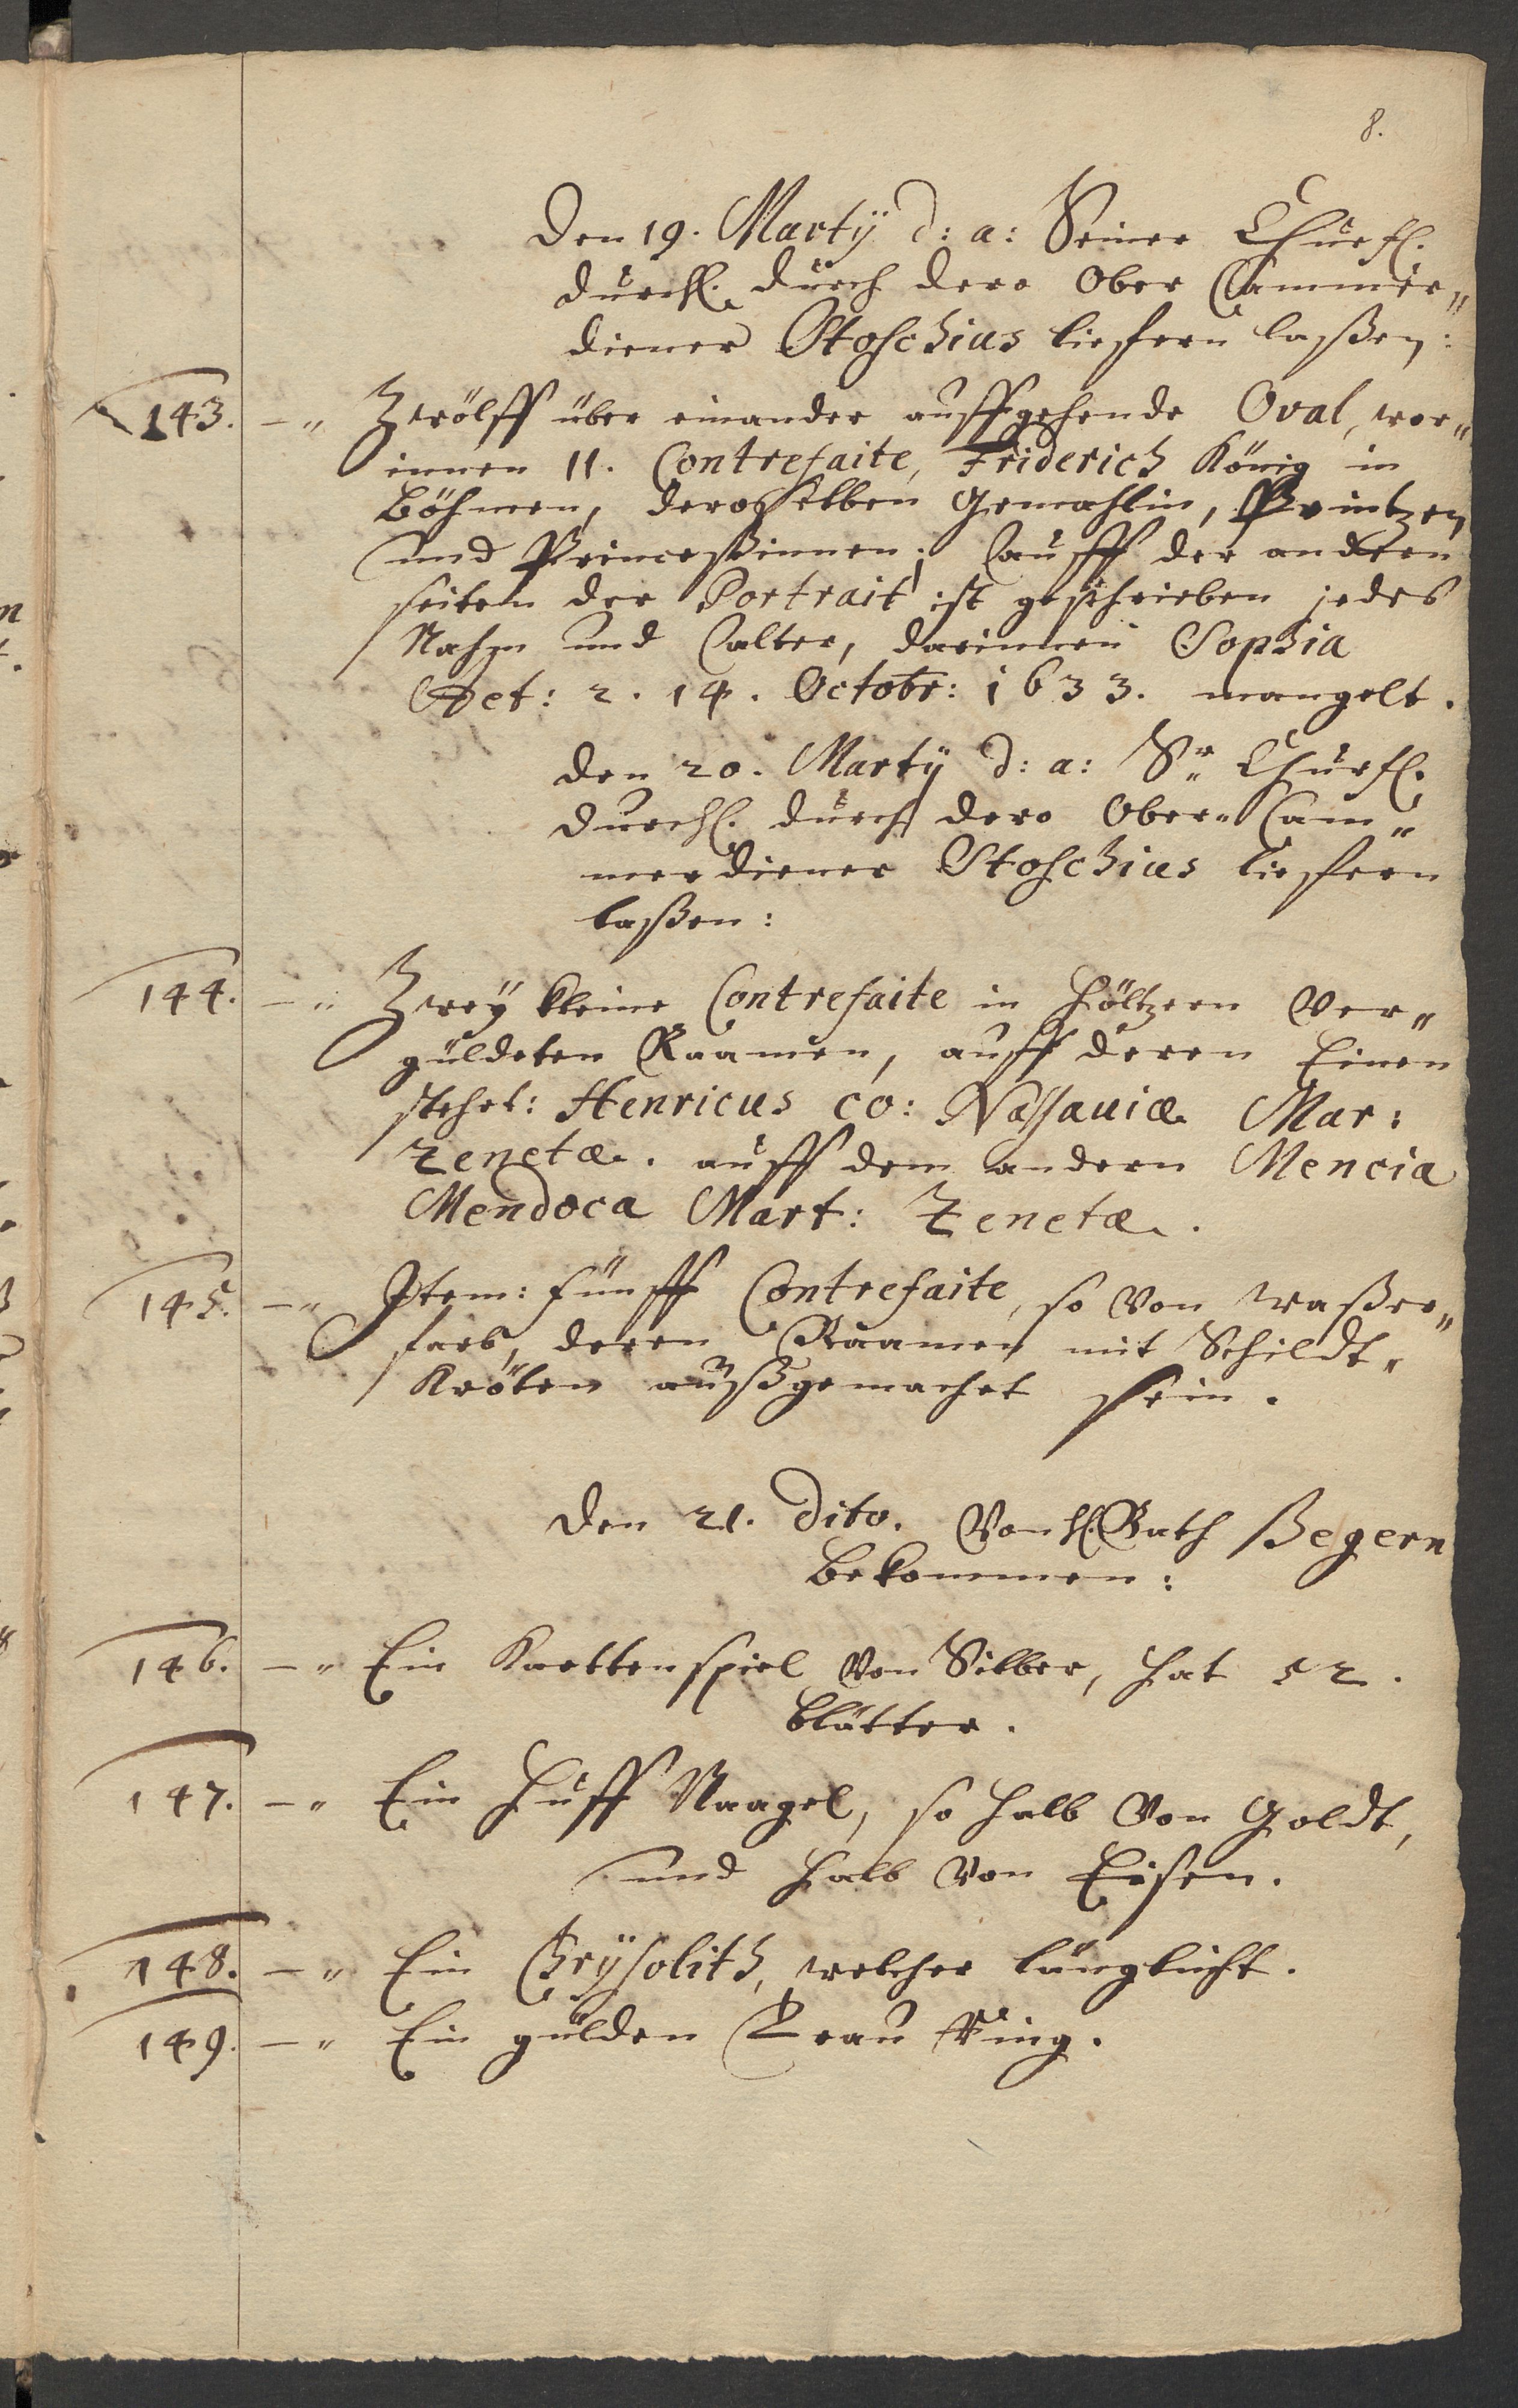 8.
Den 19. Martÿ d: a: Seiner Churfl.
Durchl. durch dero Ober Cammer„
diener Stoschius liefern laßen:
143. –„ Zwölff über einander auffgehende Oval, wor„
innen 11. Contrefaite, Friderich König in
Böhmen, deroselben Gemahlin, Printzen
und Princeßinnen; auff der andern
seiten der Portrait ist geschrieben jedes
Nahm und alter, darinnen Sophia
Aet: 2. 14. Octobr: 1633. mangelt.
Den 20. Martÿ d: a: Sr. Churfl.
Durchl. durch dero Ober„Cam„
merdiener Stoschius liefern
laßen:
144. –„ Zweÿ kleine Contrefaite in höltzern ver„
güldeten Raamen, auff deren Einen
stehet: Henricus co: Nassauiæ Mar:
Zenetæ. auff dem andern Mencia
Mendoca Mart: Zenetæ.
145. –„ Item: fünff Contrefaite, so von waßer„
farb, deren Raamen mit Schildt„
Kröten außgemachet sein.
Den 21. dito. Von H. Rath Begern
bekommen:
146. –„ Ein Kartten spiel von Silber, hat 52.
blätter.
147. –„ Ein Huff Naagel, so halb von Goldt,
und halb von Eisen.
148. –„ Ein Chrÿsolith, welcher länglicht.
149. –„ Ein gülden Trau Ring.